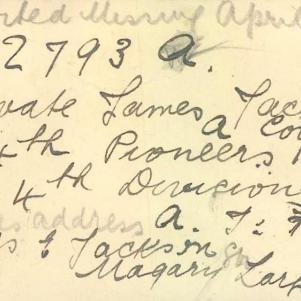 rted Missing April
2793 A.
vate James Jack
A Co
4th Pioneers
4th Division
s address A. I. F
s J Jackson
Magary